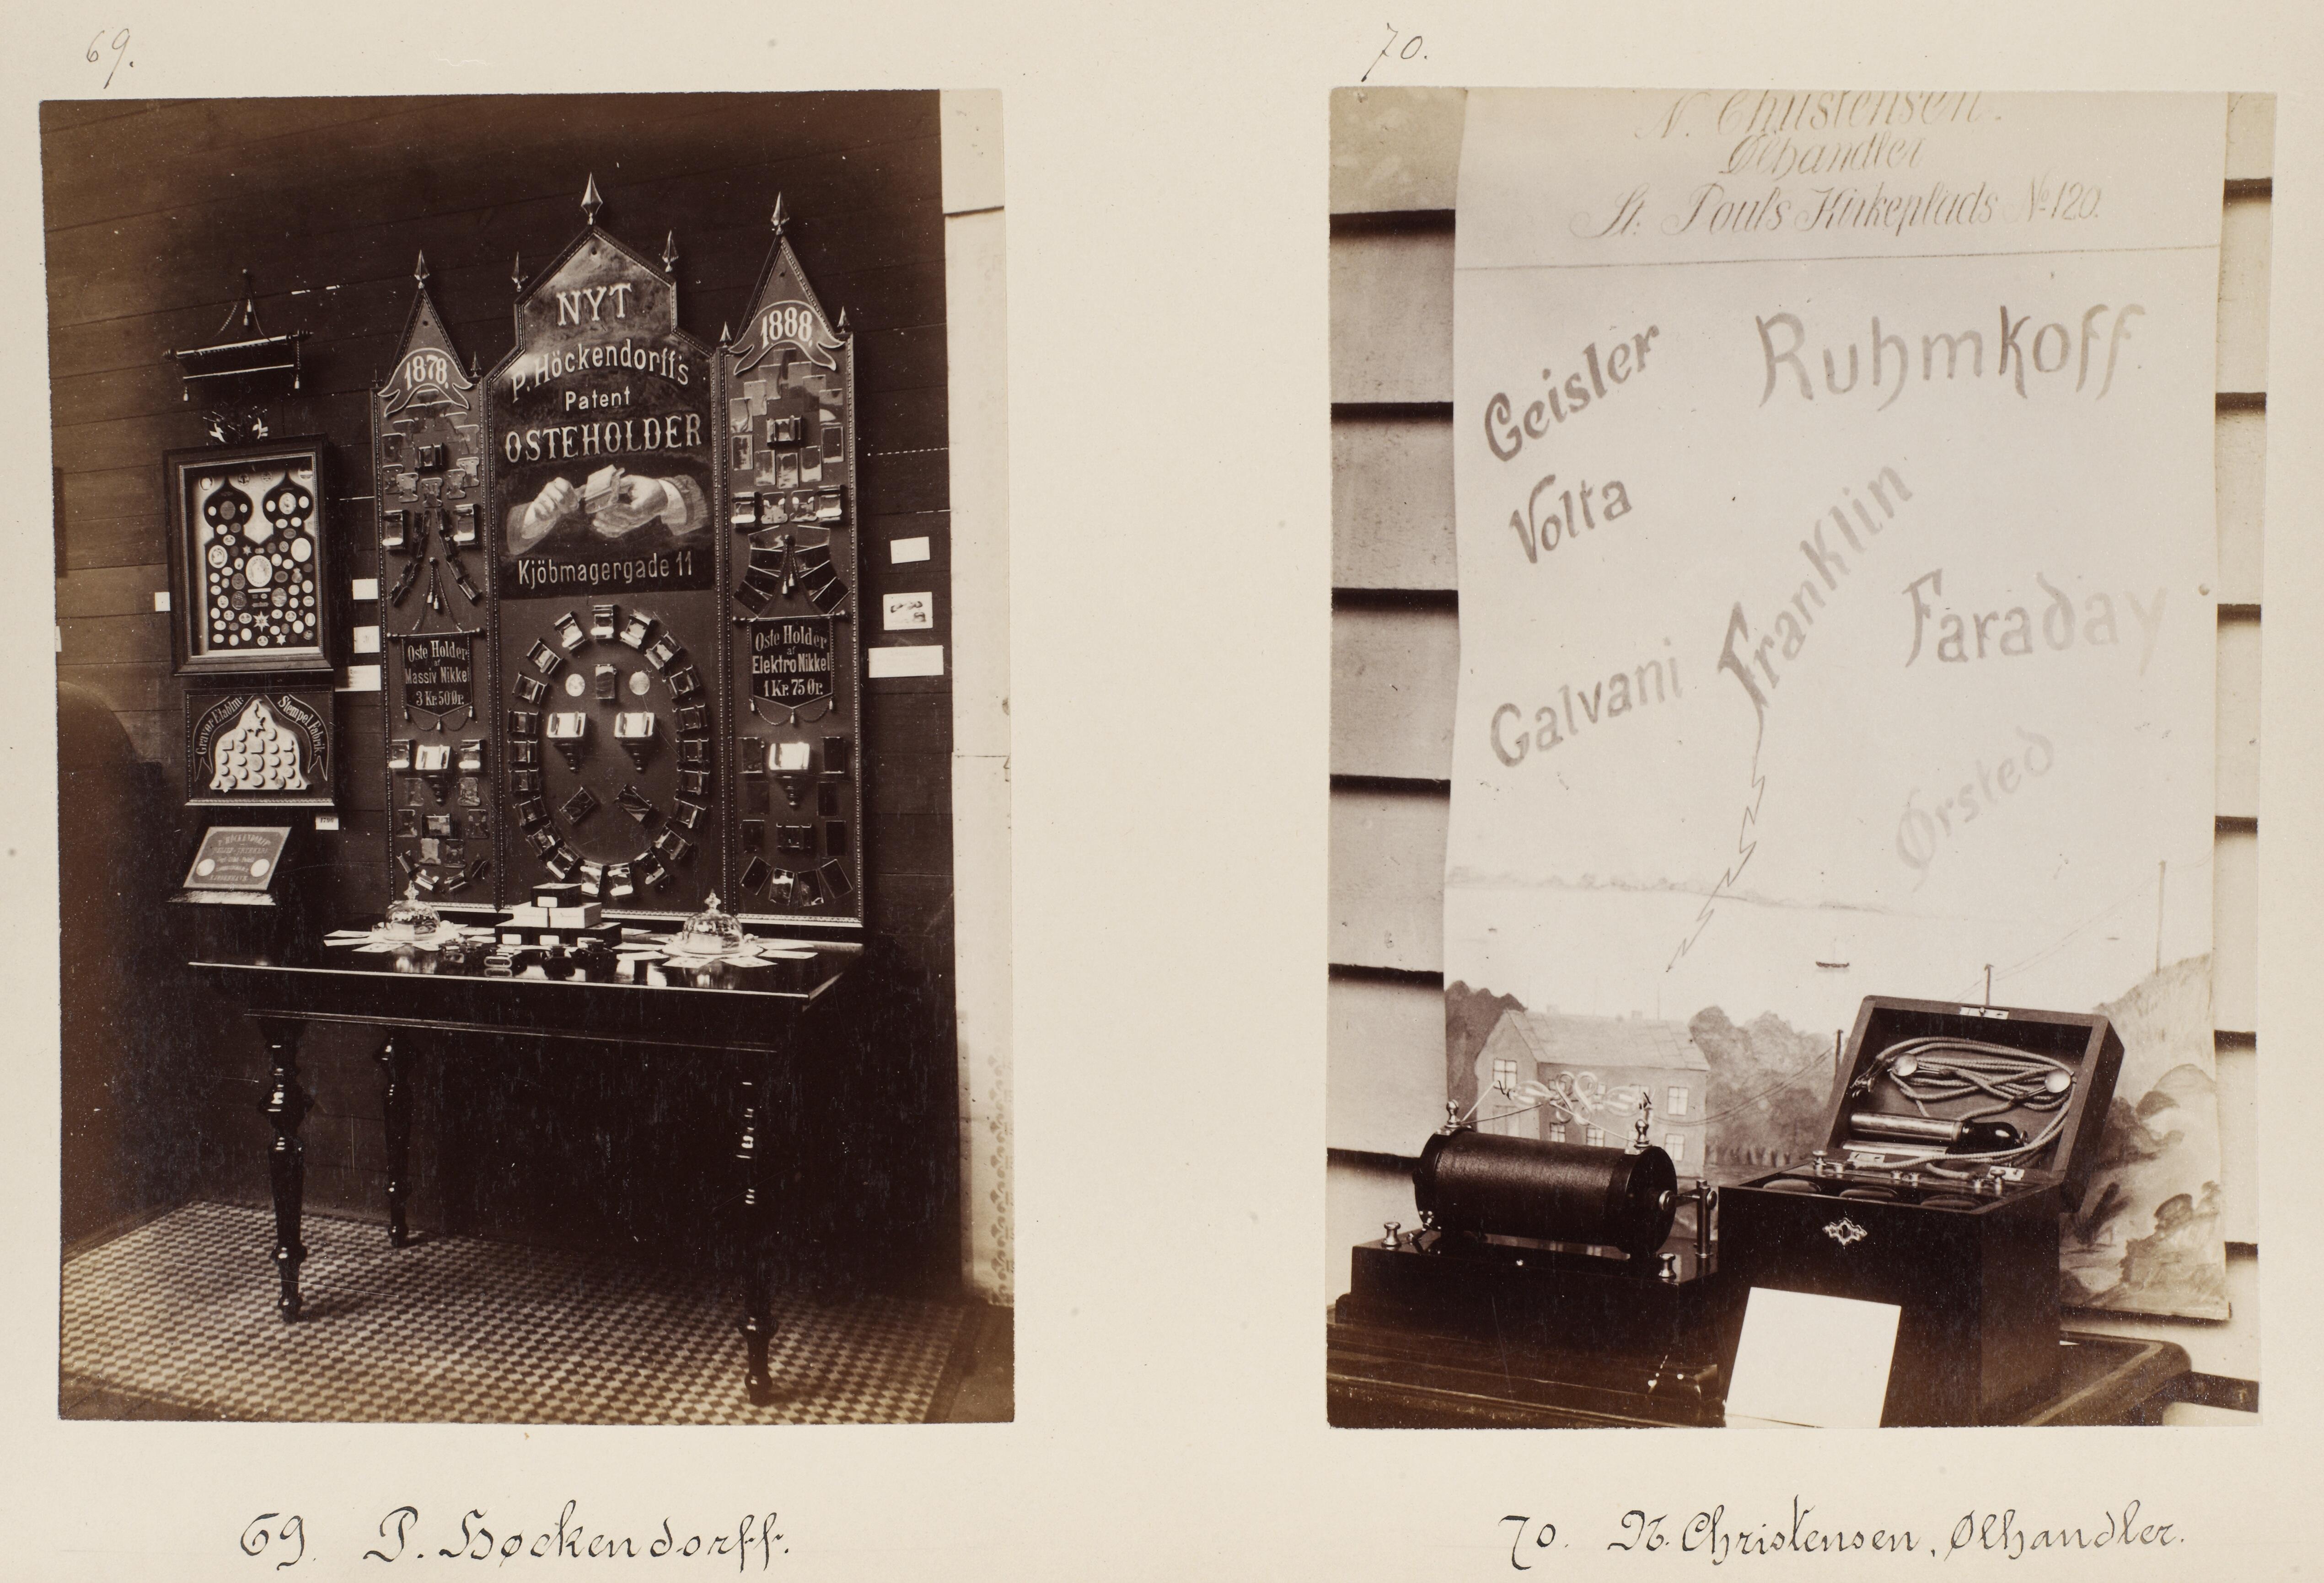 69.
70.
NYT
P. Höckendorff's
Patent
OSTEHOLDER
Kjöbmagergade 11
1878.
1888.
Oste Holder
af
Massiv Nikkel
3 Kr. 50 Ør.
Oste Holder
af
Elektro Nikkel
1 Kr. 75 Ør.
Graveur Etablmt
Stempel Fabrik
P. HÖCKENDORFF
N. Christensen.
Ølhandler
St: Pouls Kirkeplads No 120.
Geisler
Ruhmkoff
Volta
Franklin
Galvani
Faraday
Ørsted
69. P. Høckendorff.
70. N. Christensen, Ølhandler.